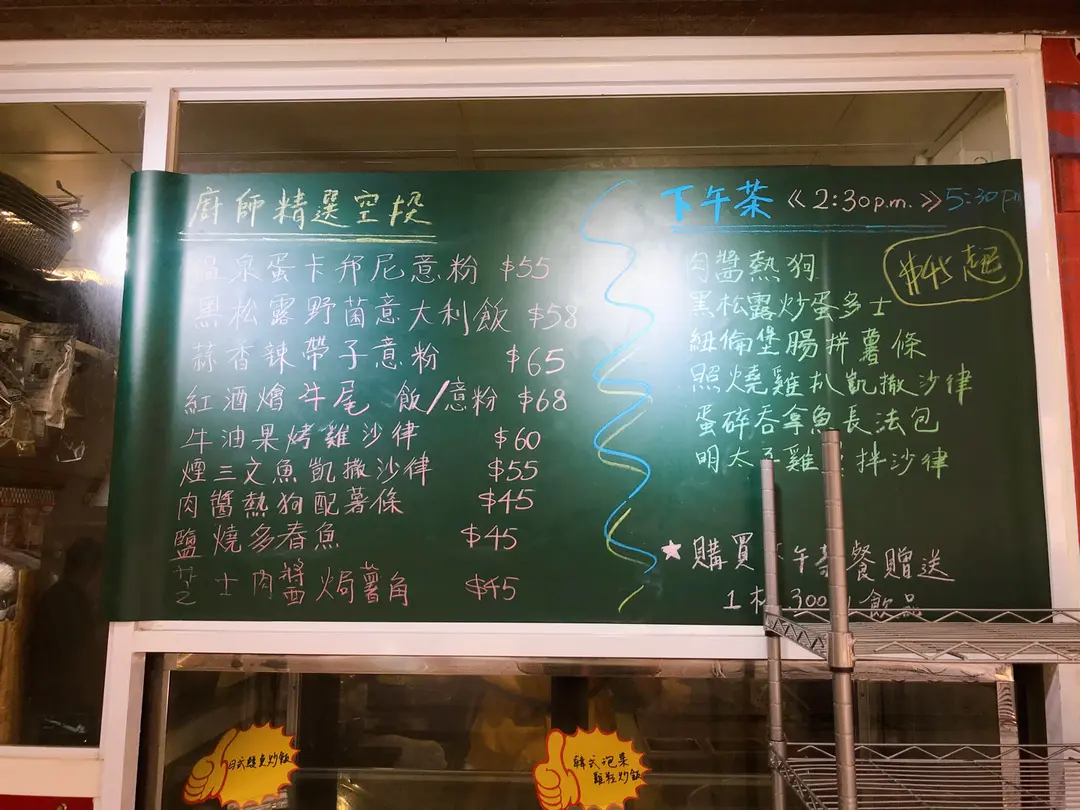 廚師精選空投
溫泉蛋卡邦尼意粉 $55
黑松露野菌意大利飯 $58
蒜香辣帶子意粉 $65
紅酒燴牛尾 飯/意粉 $68
牛油果烤雞沙律 $60
煙三文魚凱撒沙律 $55
肉醬熱狗配薯條 $45
鹽燒多春魚 $45
芝士肉醬焗薯角 $45
下午茶 《2:30p.m.》5:30pm
$45起
肉醬熱狗
黑松露炒蛋多士
紐倫堡腸拌薯條
照燒雞扒凱撒沙律
蛋碎吞拿魚長法包
明太子雞 拌沙律
★購買 午茶餐贈送
1杯 300 飲品
日式鰻魚炒飯
韓式泡菜
雞粒炒飯